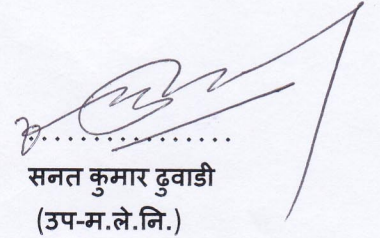 . . . . . . . . . . . . . . . .
सनत कुमार ढुवाडी
(उप-म.ले.नि.)